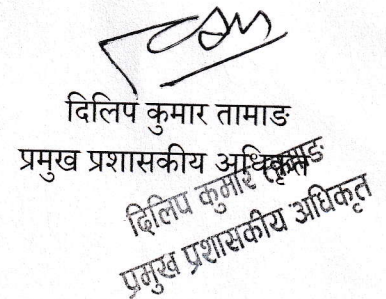 दिलिप कुमार तामाङ
प्रमुख प्रशासकीय अधिकृत
दिलिप कुमार तामाङ
प्रमुख प्रशासकीय अधिकृत